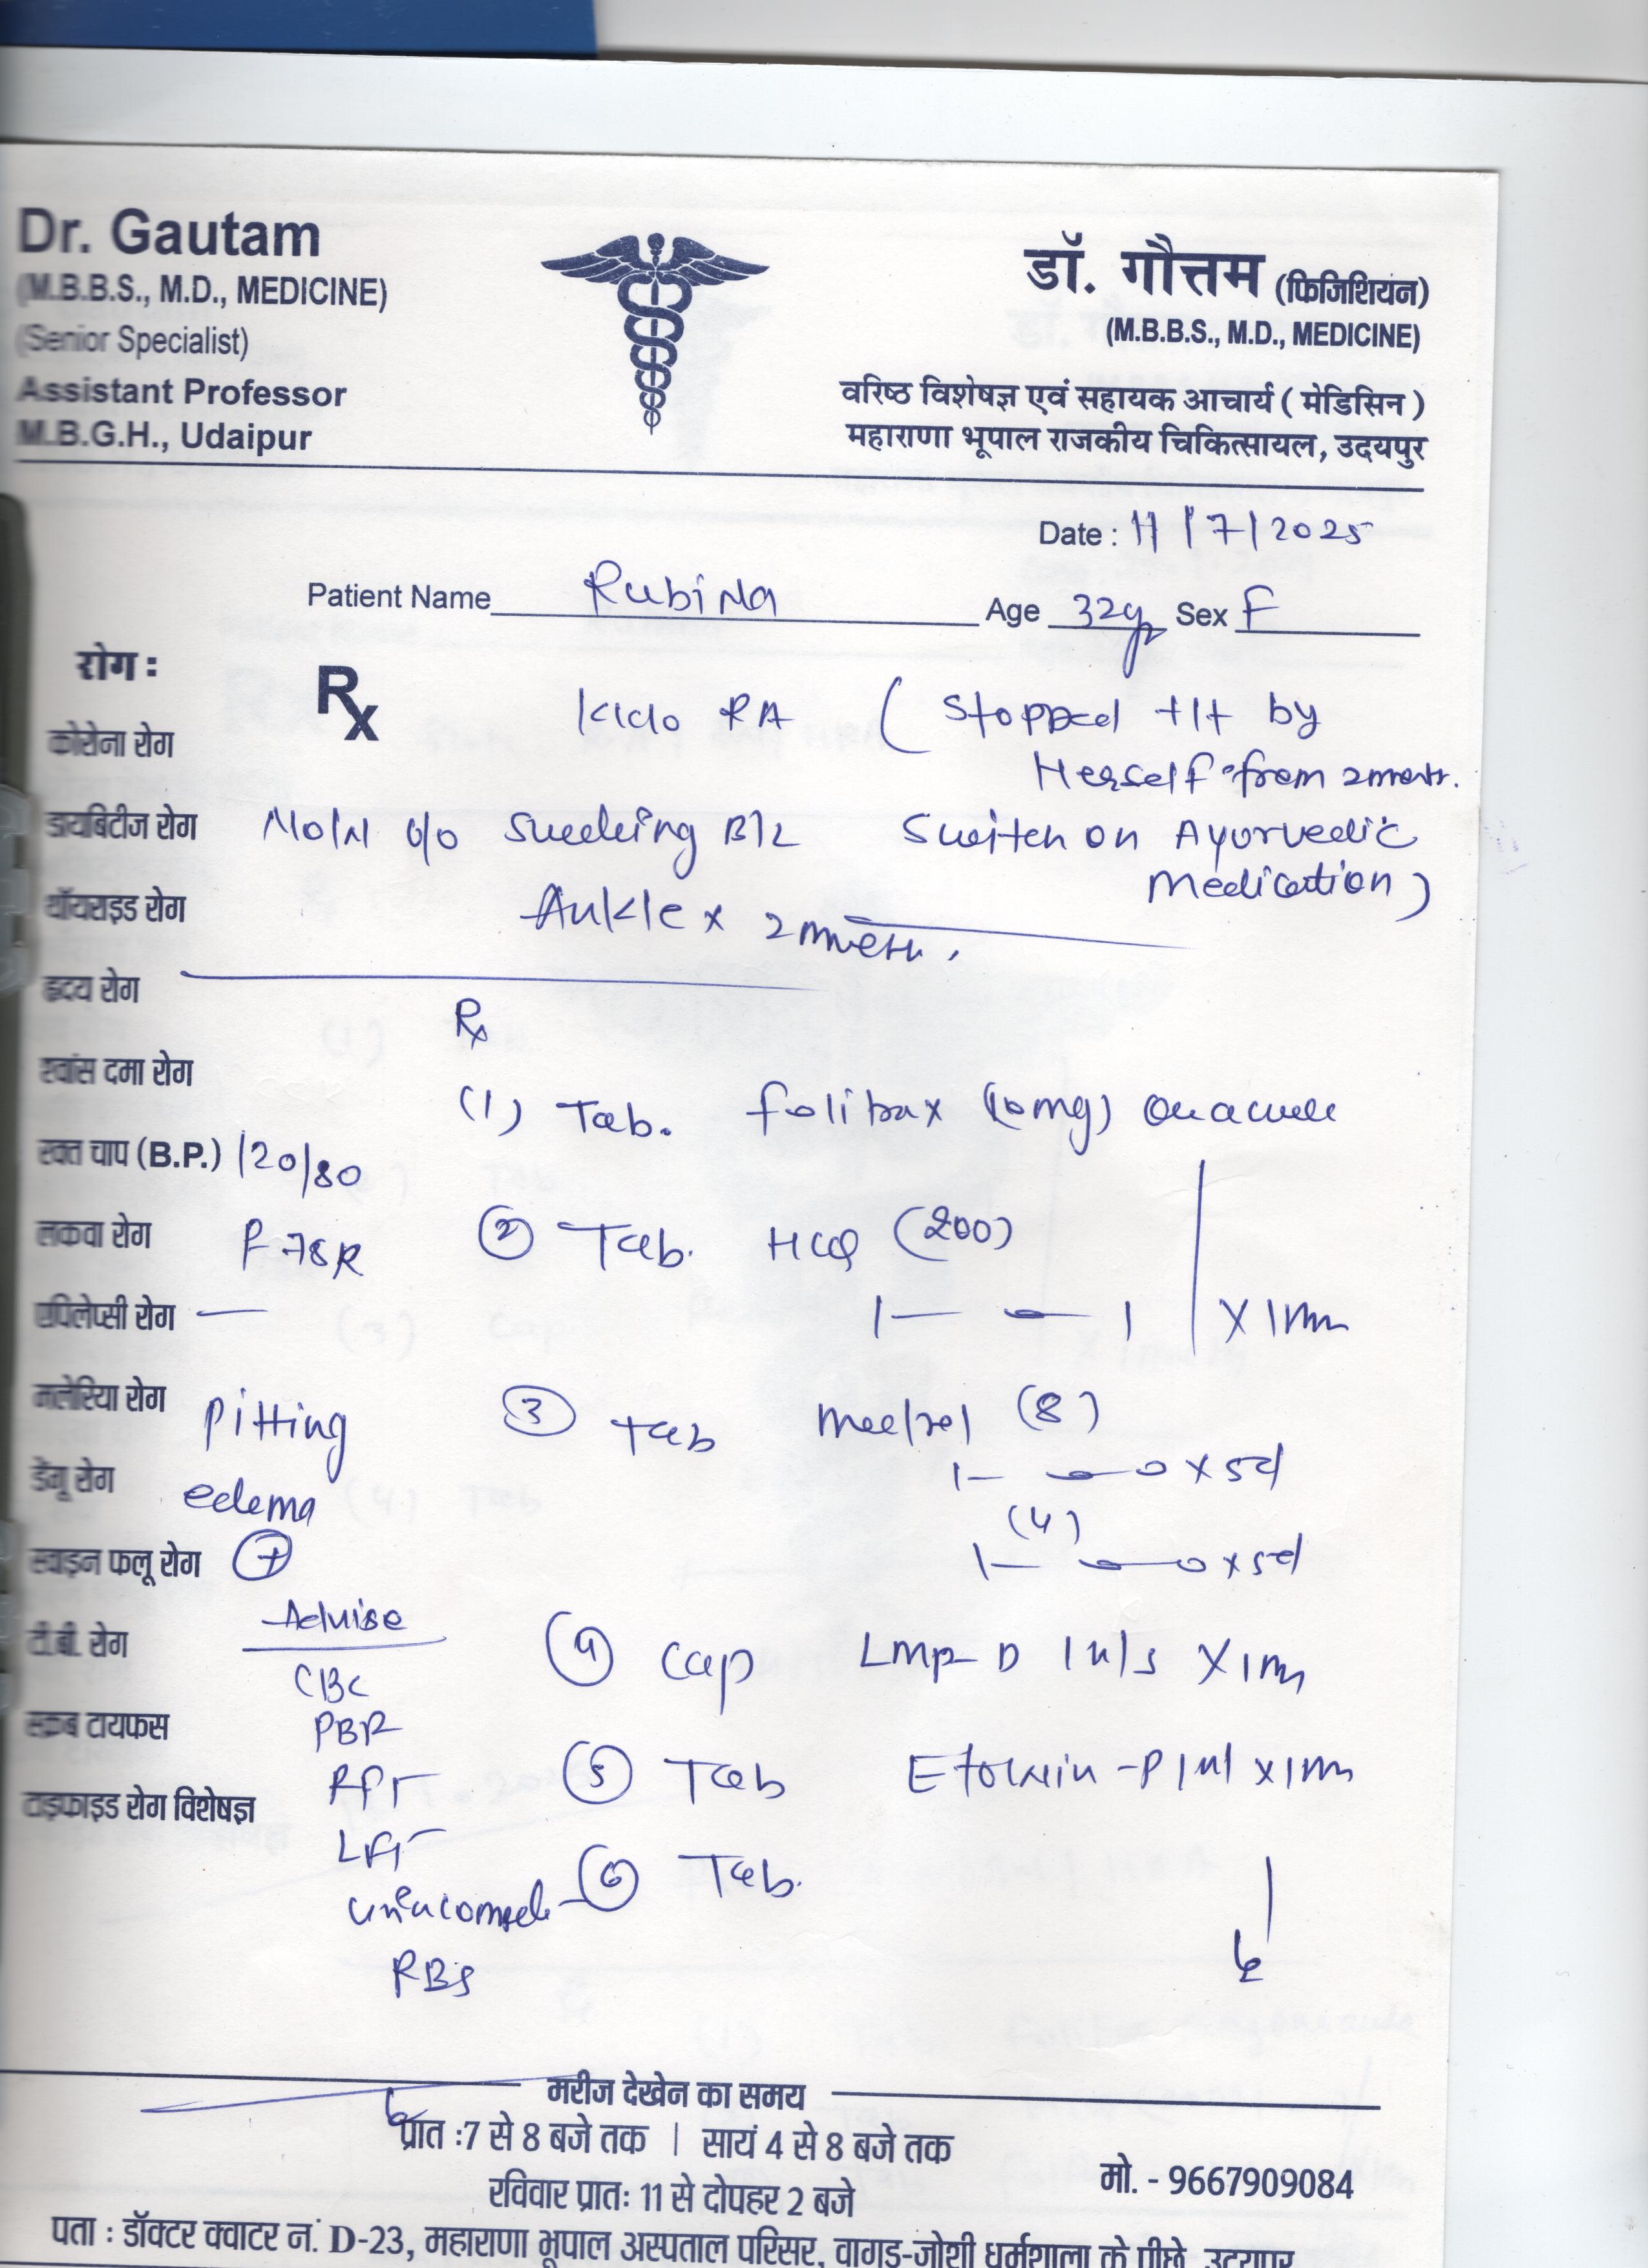 Dr. Gautam
(M.B.B.S., M.D., MEDICINE)
(Senior Specialist)
Assistant Professor
M.B.G.H., Udaipur
डॉ. गौत्तम (फिजिशियन)
(M.B.B.S., M.D., MEDICINE)
वरिष्ठ विशेषज्ञ एवं सहायक आचार्य ( मेडिसिन )
महाराणा भूपाल राजकीय चिकित्सायल, उदयपुर
Date : 11/7/2025
Patient Name Rubina Age 32yr Sex F
रोग :
Rx K/c/o RA (Stopped t/t by
Herself from 2 month.
कोरोना रोग
डायबिटीज रोग Now c/o swelling B/L Switch on Ayurvedic
Medication)
थॉयराइड रोग Ankle x 2 month.
हृदय रोग
Rx
श्वांस दमा रोग
(1) Tab. Folitrax (10mg) Once a week
रक्त चाप (B.P.) 120/80
लकवा रोग P-78 R (2) Tab. HCQ (200)
एपिलेप्सी रोग — 1 — 0 — 1 x 1m
मलेरिया रोग Pitting (3) Tab Medrol (8)
1 — 0 — 0 x 5d
डेंगू रोग edema (4)
स्वाइन फलू रोग (+) 1 — 0 — 0 x 5d
Advise
टी.बी. रोग (4) Cap D x 1m
CBC
स्क्रब टायफस PBF
(5) Tab -P x 1m
टाइफाइड रोग विशेषज्ञ RFT
LFT
(6) Tab.
Urine complete
RBS
मरीज देखेन का समय
प्रात :7 से 8 बजे तक | सायं 4 से 8 बजे तक
रविवार प्रातः 11 से दोपहर 2 बजे
मो. - 9667909084
पता : डॉक्टर क्वाटर नं. D-23, महाराणा भूपाल अस्पताल परिसर, वागड-जोशी धर्मशाला के पीछे, उदयपुर